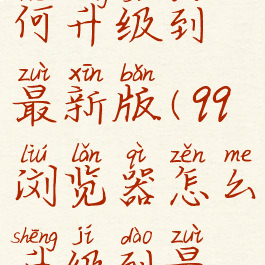 何升级到
zuì xīn bǎn
最新版(99
liú lǎn qì zěn me
浏览器怎么
shēng jí dào zuì
升级到最